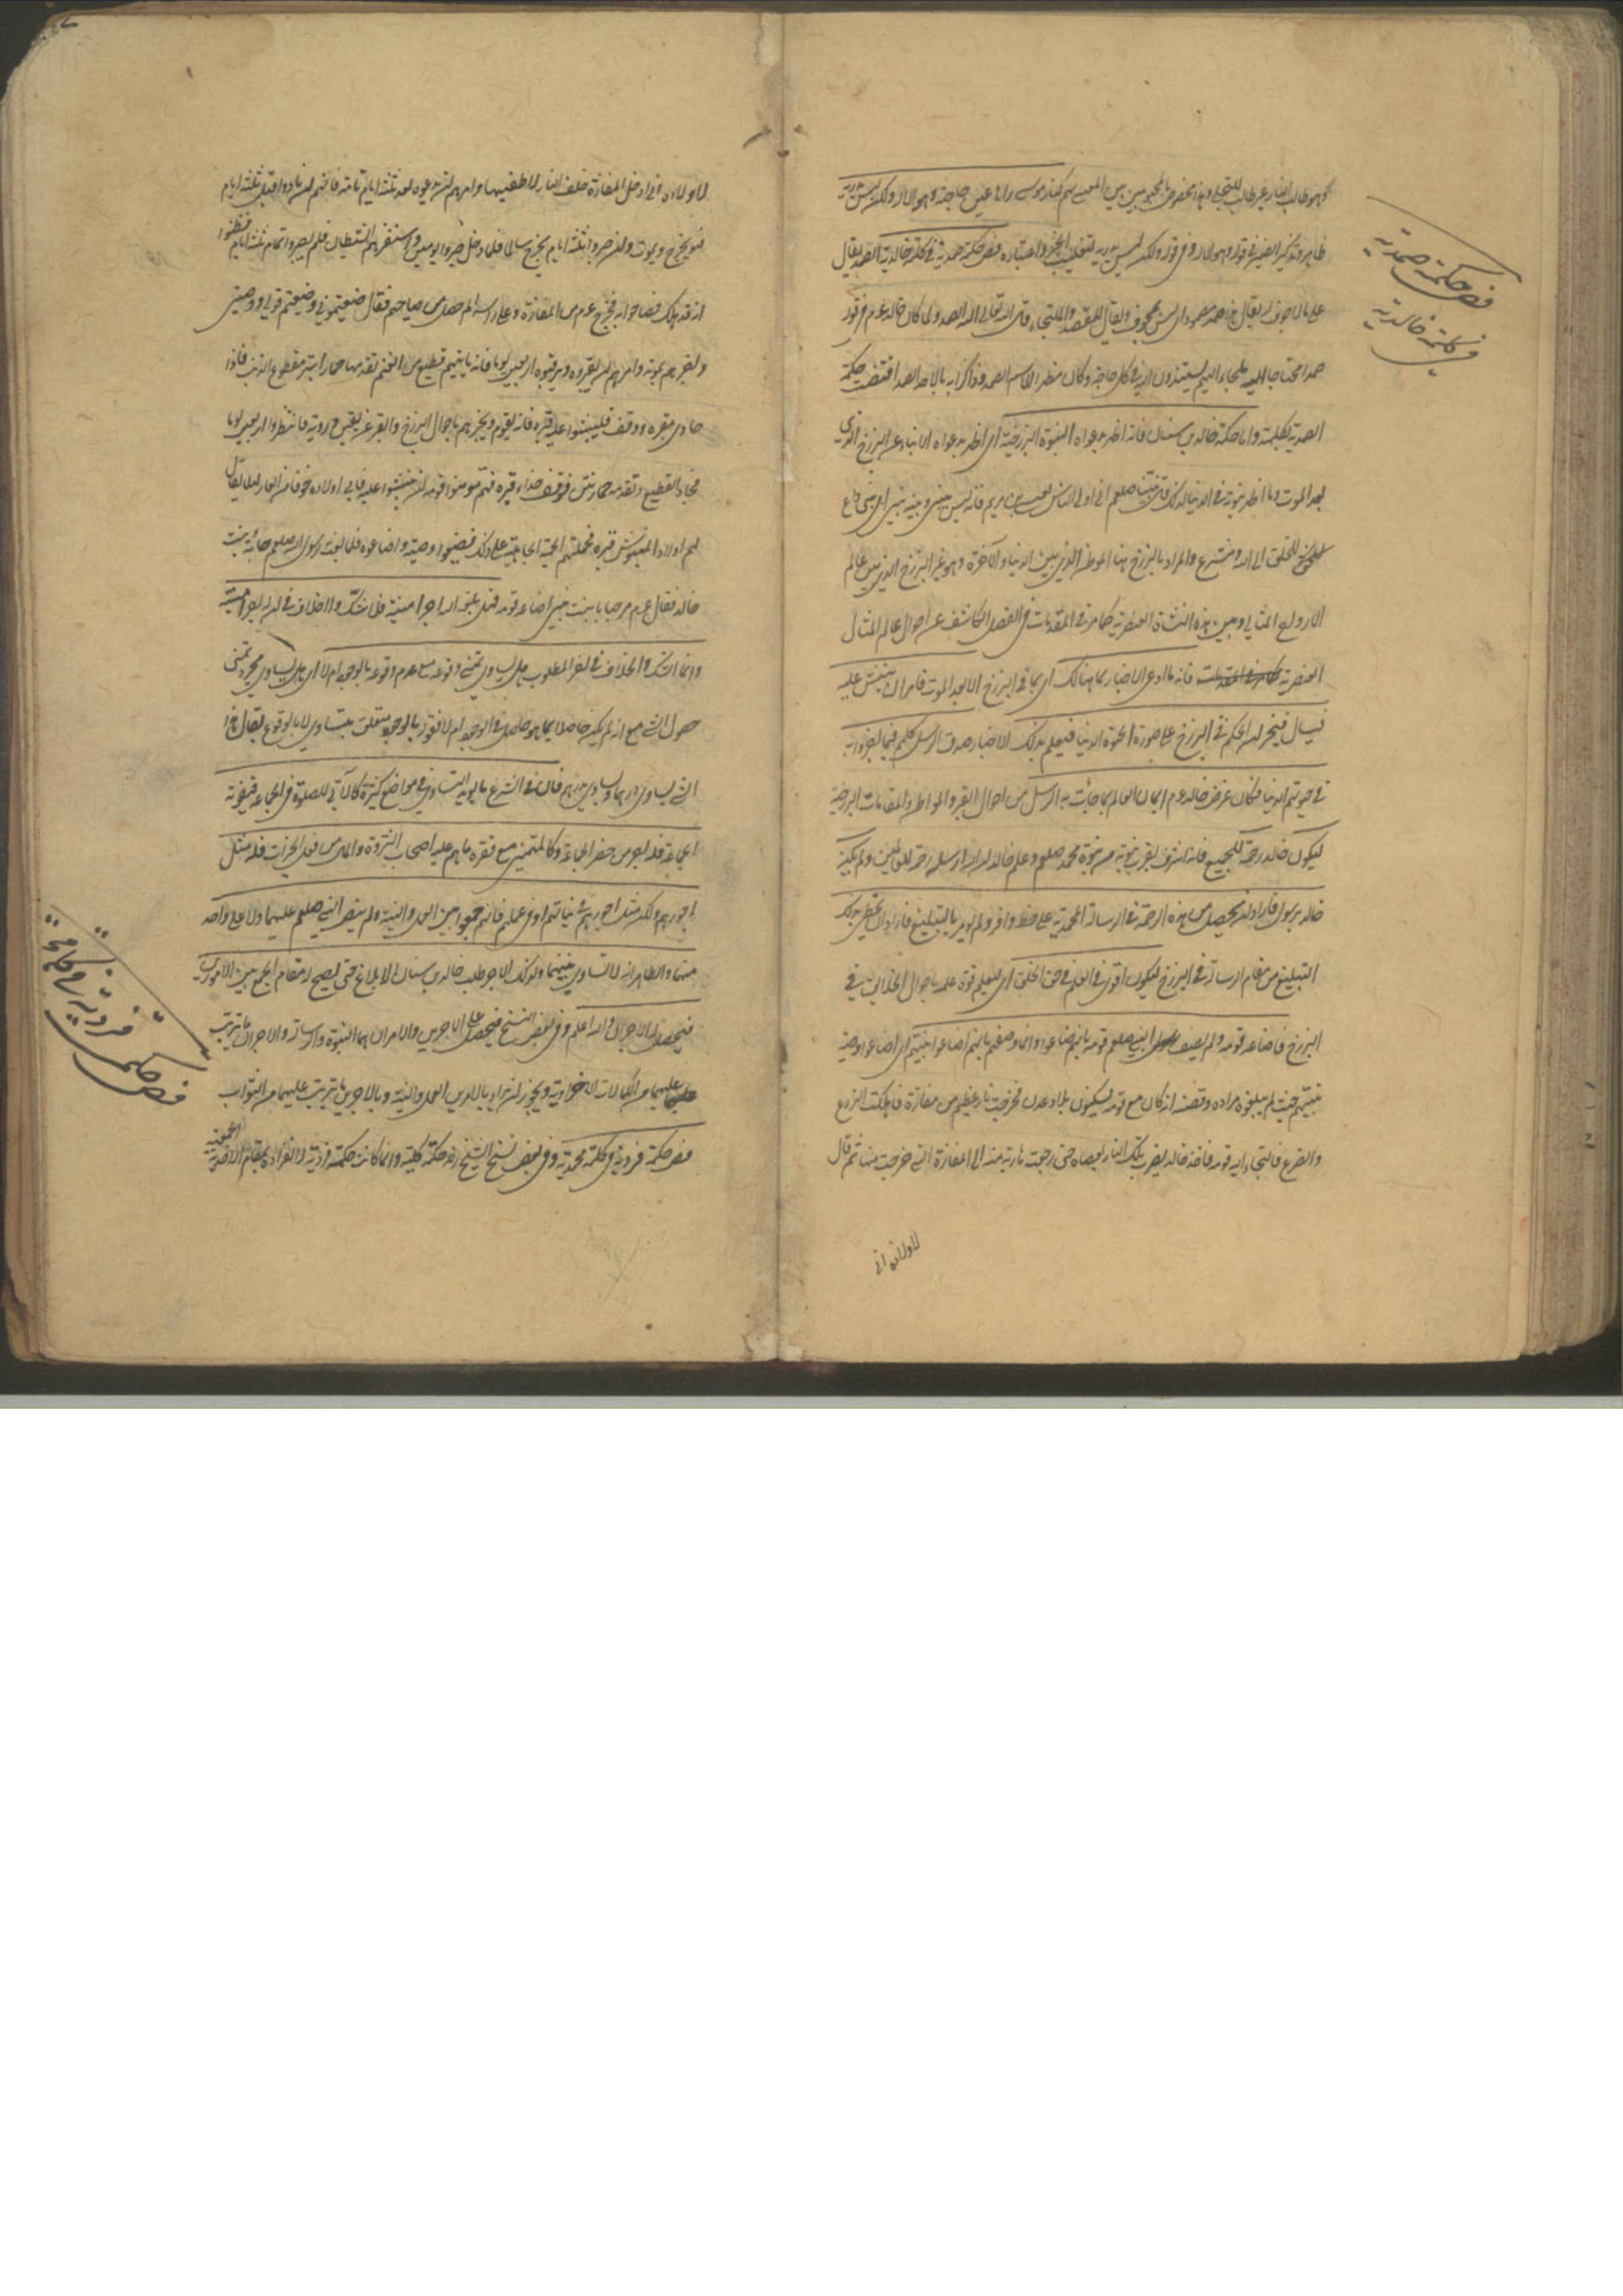 فص حكمة صمدية
في كلمة خالدية
ظاهر وتذكير الضمير في قوله وهو الاله وفي قوله ولكن ليس يدريه لتغليب الخبر واعتباره فص حكمة صمدية في كلمة خالدية الصمد يقال
على ما لا جوف له يقال هذا صمد مصمود اي ليس بمجوف ويقال للمقصد والملتجاء قال الله تعالى الله الصمد ولما كان خالد عم في قومه
صمدا محتاجا اليه ملجاء اليهم يستندون اليه في كل حاجة وكان مظهر الاسم الصمد وذاكرا به بالاحد الصمد اقتضت حكمته
الصمدية لكلمته واما حكمة خالد بن سنان فانه اظهر بدعواه النبوة البرزخية اي اظهر بدعواه الانباء عن البرزخ الذي
بعد الموت وما اظهر نبوته في الدنيا لذلك قال نبينا صلعم اني اولى الناس بعيسى بن مريم فانه ليس بيني وبينه نبي اي نبي داع
للخلق الى الله ومشرع والمراد بالبرزخ هنا الموطن الذي بين الدنيا والآخرة وهو غير البرزخ الذي بين عالم
الارواح المثالي وبين هذه النشاة العنصرية كما مر في المقدمات في الفصل الكاشف عن احوال عالم المثال
العنصرية فانه ما ادعى الاخبار بما هنالك اي بما في البرزخ الا بعد الموت فامر ان ينبش عليه
فيسال فيخبر ان الحكم في البرزخ على صورة الحيوة الدنيا فيعلم بذلك الاخبار صدق الرسل كلهم فيما اخبروا به
في حيوتهم الدنيا فكان غرض خالد عم ايمان العالم بما جائت به الرسل من احوال القبر والمواطن والمقامات البرزخية
ليكون خالد رحمة للجميع فانه اشرف بقرب نبوته من نبوة محمد صلعم وعلم خالد ان الله ارسله رحمة للعالمين ولم يكن
خالد برسول فاراد ان يحصل من هذه الرحمة في الرسالة المحمدية على حظ وافر ولم يومر بالتبليغ فاراد ان يحظى بذلك
التبليغ من مقام الرسالة في البرزخ ليكون اقوى في العلم في حق الخلق اي ليعلم قوة علمه باحوال الخلائق في
البرزخ فاضاعه قومه ولم يصف النبي صلعم قومه بانهم ضاعوا وانما وصفهم بانهم اضاعوا نبيهم اي اضاعوا وصية
نبيهم حيث لم يبلغوه مراده وقصته انه كان مع قومه يسكنون بلاد عدن فخرجت نار عظيمة من مغارة فاهلكت الزرع
والضرع فالتجاء اليه قومه فاخذ خالد يضرب تلك النار بعصاه حتى رجعت هاربة منه الى المغارة التي خرجت منها ثم قال
لاولاده اني
لاولاده اني ادخل المغارة خلف النار لاطفيها وامرهم ان يدعوه بعد ثلثة ايام تامة فانهم ان نادوه قبل ثلثة ايام
فهو يخرج ويموت وان صبروا ثلثة ايام يخرج سالما فلما دخل صبروا يومين واستفزهم الشيطان فلم يصبروا تمام ثلثة ايام فظنوا
انه قد هلك فصاحوا به فخرج عم من المغارة وعلى راسه الم حصل من صياحهم فقال ضيعتموني وضيعتم قولي ووصيتي
واخبرهم بموته وامرهم ان يقبروه ويرقبوه اربعين يوما فانه ياتيهم قطيع من الغنم يقدمها حمار ابتر مقطوع الذنب فاذا
حاذى بقبره ووقف فلينبشوا عليه قبره فانه يقوم ويخبرهم باحوال البرزخ والقبر عن يقين ورؤية فانتظروا اربعين يوما
فجاء القطيع وتقدمه حمار ابتر فوقف حذاء قبره فهم مومنوا قومه ان ينبشوا عليه فابى اولاده خوفا من العار لئلا يقال
لهم اولاد المنبوش قبره فحملتهم الحمية الجاهلية على ذلك فضيعوا وصيته واضاعوه فلما بعث رسول الله صلعم جائته بنت
خالد فقال عم مرحبا بابنة نبي اضاعه قومه فهل بلغه الله اجر امنيته فلا شك ولا خلاف في ان له اجر امنيته
وانما الشك والخلاف في اجر المطلوب هل يساوي تمني وقوعه مع عدم وقوعه بالوجود ام لا اي هل يساوي مجرد تمني
حصول الشيء مع انه لم يكن حاصلا بما هو حاصل في الوجود ام لا فقوله بالوجود متعلق بيساوي لا بالوقوع يقال هذا
الشيء يساوي درهما ويساوي بدرهم فان في الشرع ما يؤيد التساوي في مواضع كثيرة كالآتي للصلوة في الجماعة فتفوته
الجماعة فله اجر من حضر الجماعة وكالمتمني مع فقره ما هم عليه اصحاب الثروة والمال من فعل الخيرات فله مثل
اجورهم ولكن مثل اجورهم في نياتهم او في عملهم فانهم جمعوا بين العمل والنية ولم ينص النبي صلعم عليهما ولا على واحد
منهما والظاهر انه لا تساوي بينهما ولذلك طلب خالد بن سنان الابلاغ حتى يصح له مقام الجمع بين الامرين
فيحصل له الاجران والله اعلم وفي بعض النسخ فيحصل على الاجرين والامران هما النبوة والرسالة والاجران ما يترتب
عليهما من الكمالات الاخراوية ويجوز ان يراد بالامرين العمل والنية وبالاجرين ما يترتب عليهما من الثواب
فص حكمة فردية في كلمة محمدية وفي بعض نسخ الشيخ رضه حكمة كلية وانما كانت حكمته فردية لانفراده بمقام الجمعية
فص حكمة فردية في كلمة